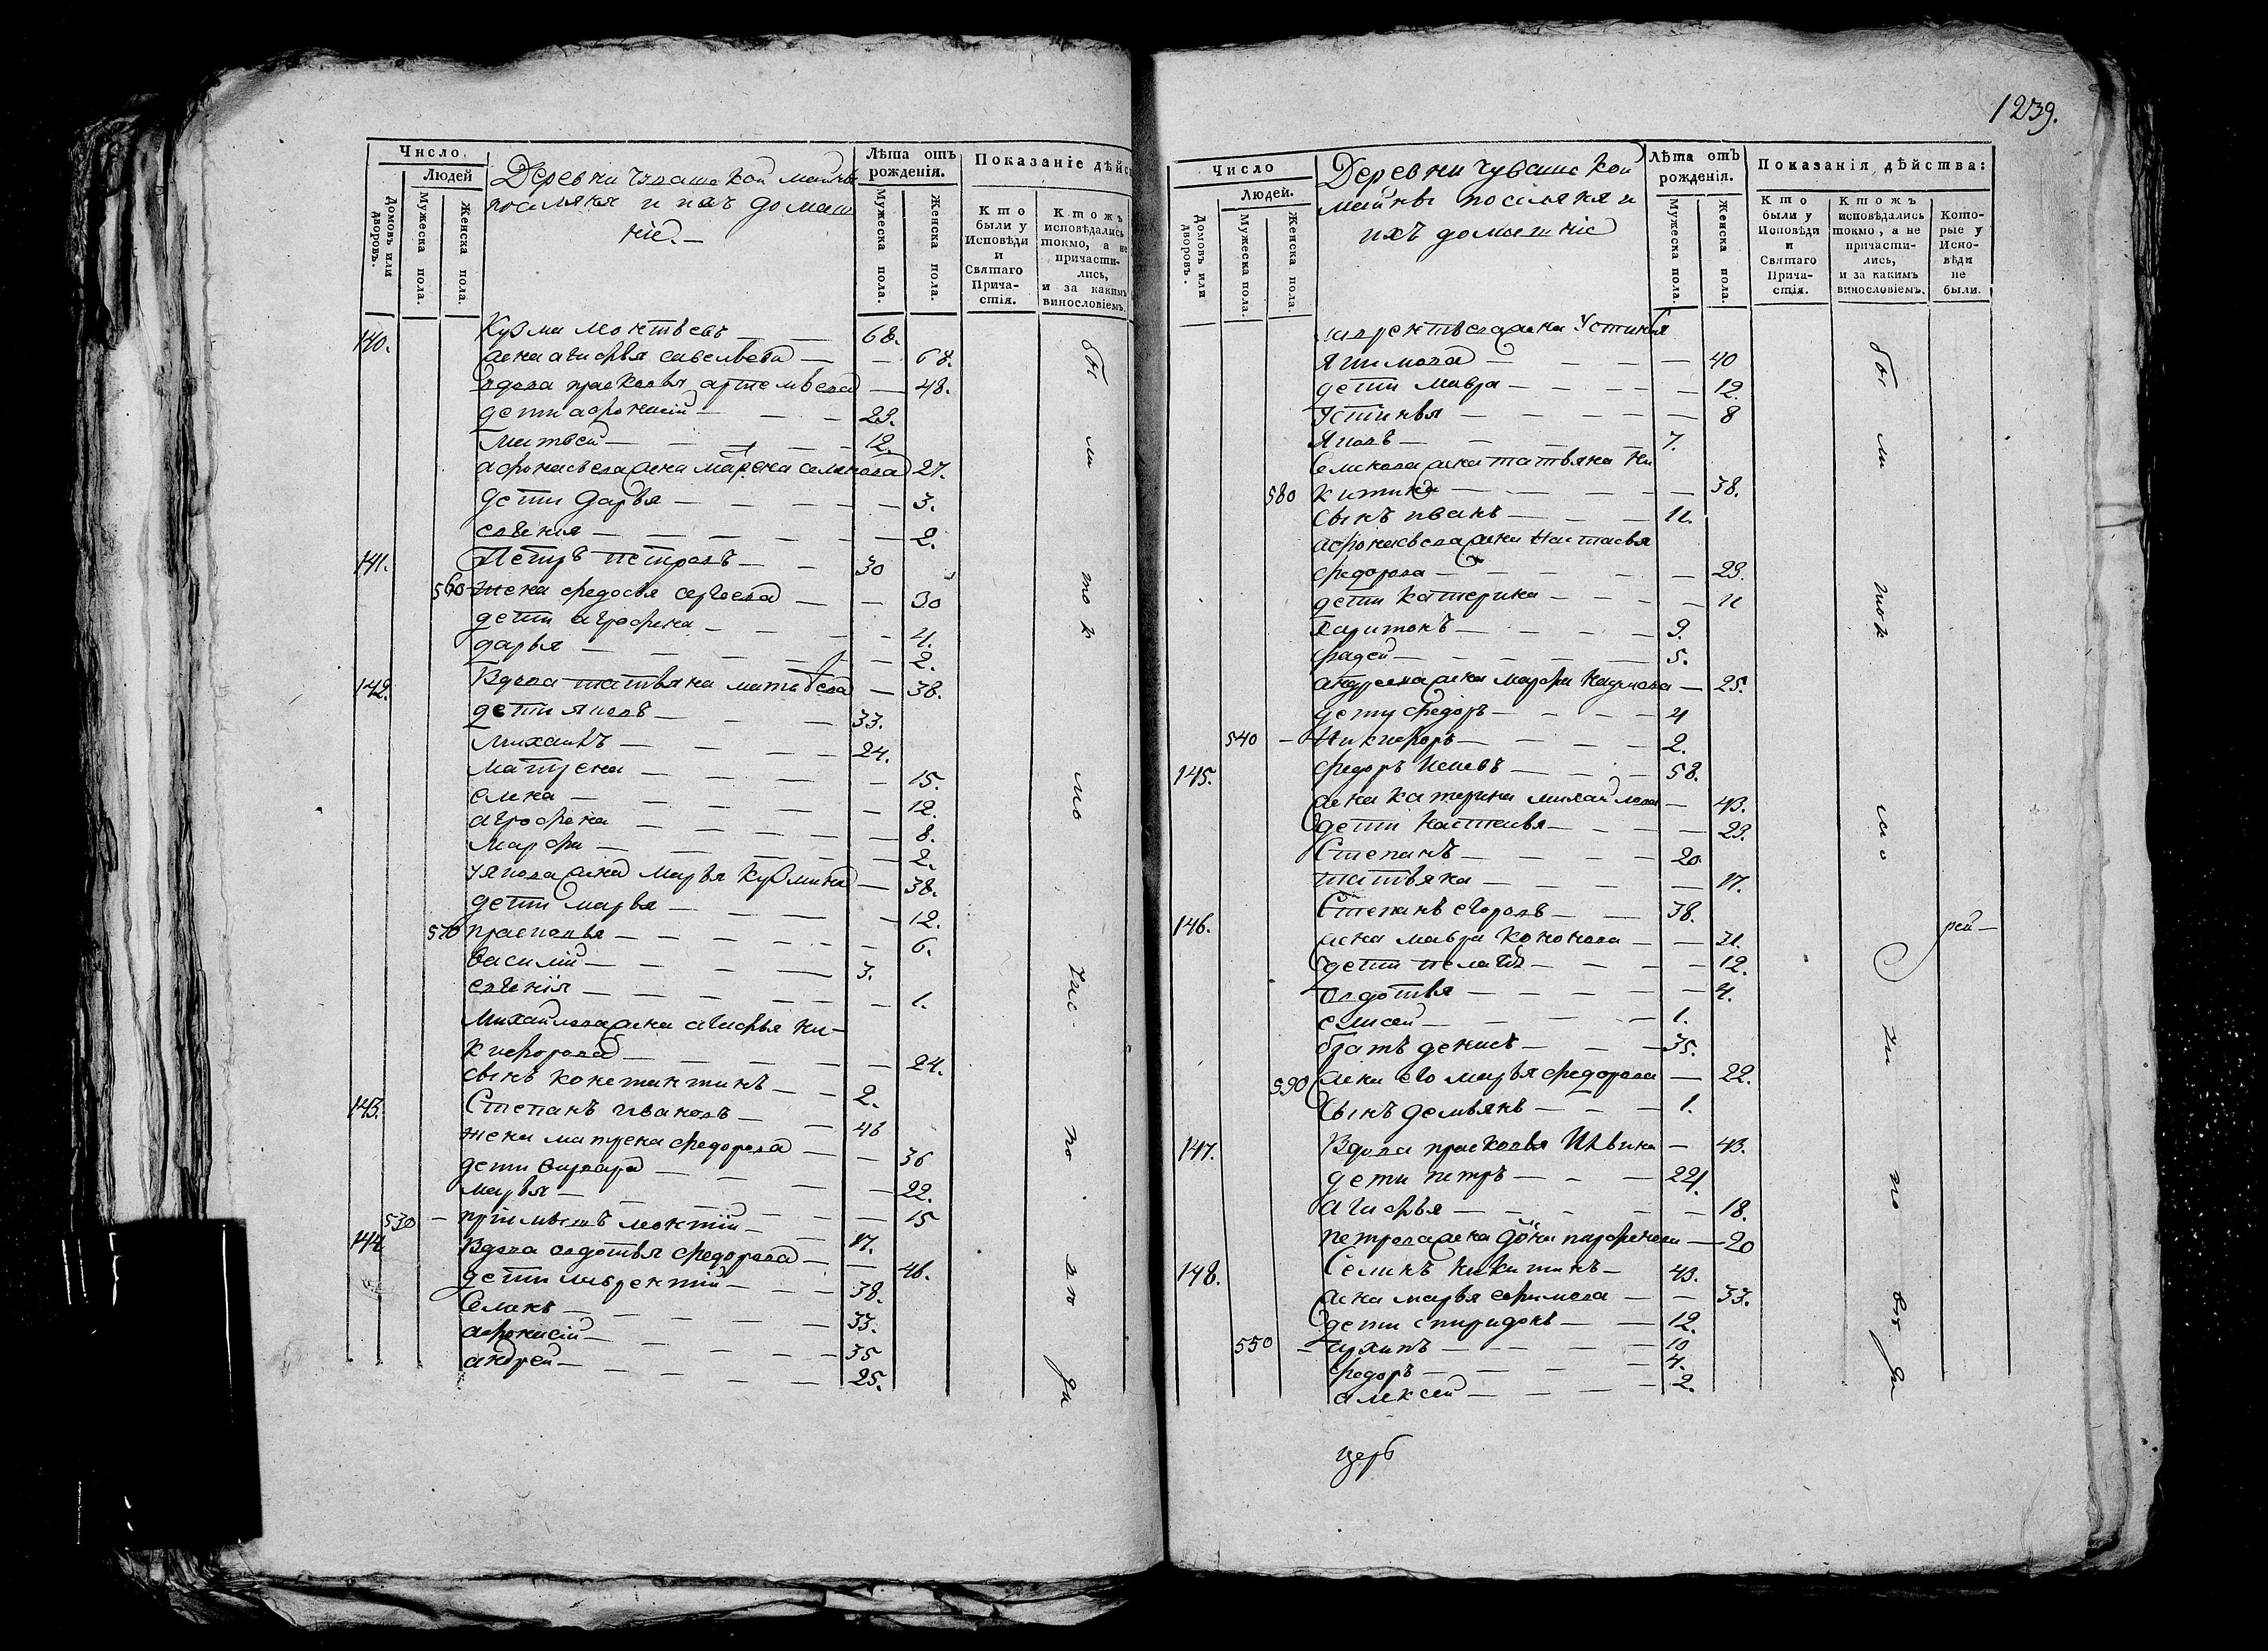 Число
Людей
Домовъ или дворовъ.
Мужеска пола.
Женска пола.
Деревни чуваше кой майны
поселяня и ихъ домаш
нiе.—
Лѣта отъ рожденія.
Мужеска пола.
Женска пола.
Показаніе дѣйс
Кто были у Исповѣди и Святаго Причастія.
Ктожъ исповѣдались токмо, а не причастились, и за какимъ винословіемъ.
140. Кузма моктѣевъ — 68.
жена агафья савельева — 68.
вдова прасковья артемьева — 48.
дети афонасiй — 23.
матвей — 12.
афонасьева жена марена семенова 27.
дети дарья — 3.
евгения — 2.
141. Петръ петровъ — 30
560 жена федосья сергеева — 30
дети аграфена — 4.
дарья — 2.
142. Вдова татьяна матвеева — 38.
дети яковъ — 33.
михаилъ — 24.
матрена — 15.
елена — 12.
аграфена — 8.
марфа — 2.
уякова жена марья кузмина — 38.
дети марья — 12.
570 прасковья — 6.
василiй — 3.
евгенiя — 1.
михайлова жена агафья ни-
кифорова — 24.
сынъ константинъ — 2.
143. Степанъ ивановъ — 46
жена матрена федорова — 36
дети варвара — 22.
марья — 15
530 — прiимышъ моктiй — 17.
144. Вдова авдотья федорова — 46.
дети лаврентiй — 38.
семенъ — 33.
афонасiй — 35
андрей — 25.
бы ли то к мо у ис- по вѣ ди
1239.
Число
Людей.
Домовъ или дворовъ.
Мужеска пола.
Женска пола.
Деревни чуваше кой
майны поселяня и
ихъ домашнiе
Лѣта отъ рожденія.
Мужеска пола.
Женска пола.
Показанія дѣйства:
Кто были у Исповѣди и Святаго Причастія.
Ктожъ исповѣдались токмо, а не причастились, и за какимъ винословіемъ.
Которые у Исповѣди не были.
лаврентьева жена Устинья
якимова — 40
дети мавра — 12.
устинья — 8
яковъ — 7.
семенова жена татьяна ни
580 китина — 38.
сынъ иванъ — 11.
афонасьева жена настасья
федорова — 23.
дети катерина — 11
харитонъ — 9.
фадей — 5.
андреева жена марфа наумова — 25.
дети федоръ — 4
540 — никифоръ — 2.
145. федоръ исаевъ — 58.
жена катерина михайлова — 43.
дети настасья — 23.
степанъ — 20
татьяна — 17.
146. Степанъ егоровъ — 38.
жена мавра кононова — 31.
дети пелагея — 12.
авдотья — 4.
елисей — 1.
братъ денисъ — 35.
590 жена его марья федорова — 22.
сынъ демьянъ — 1.
147. Вдова прасковья ильина — 43.
дети петръ — 21.
агафья — 18.
петрова жена парфенова — 20
148. Семенъ никитинъ — 43.
жена марья ефимова — 33.
дети спиридонъ — 12.
550 — архипъ — 10
федоръ — 4.
алексей — 2.
бы ли ток мо у ис по вѣ ди
рей —
церь